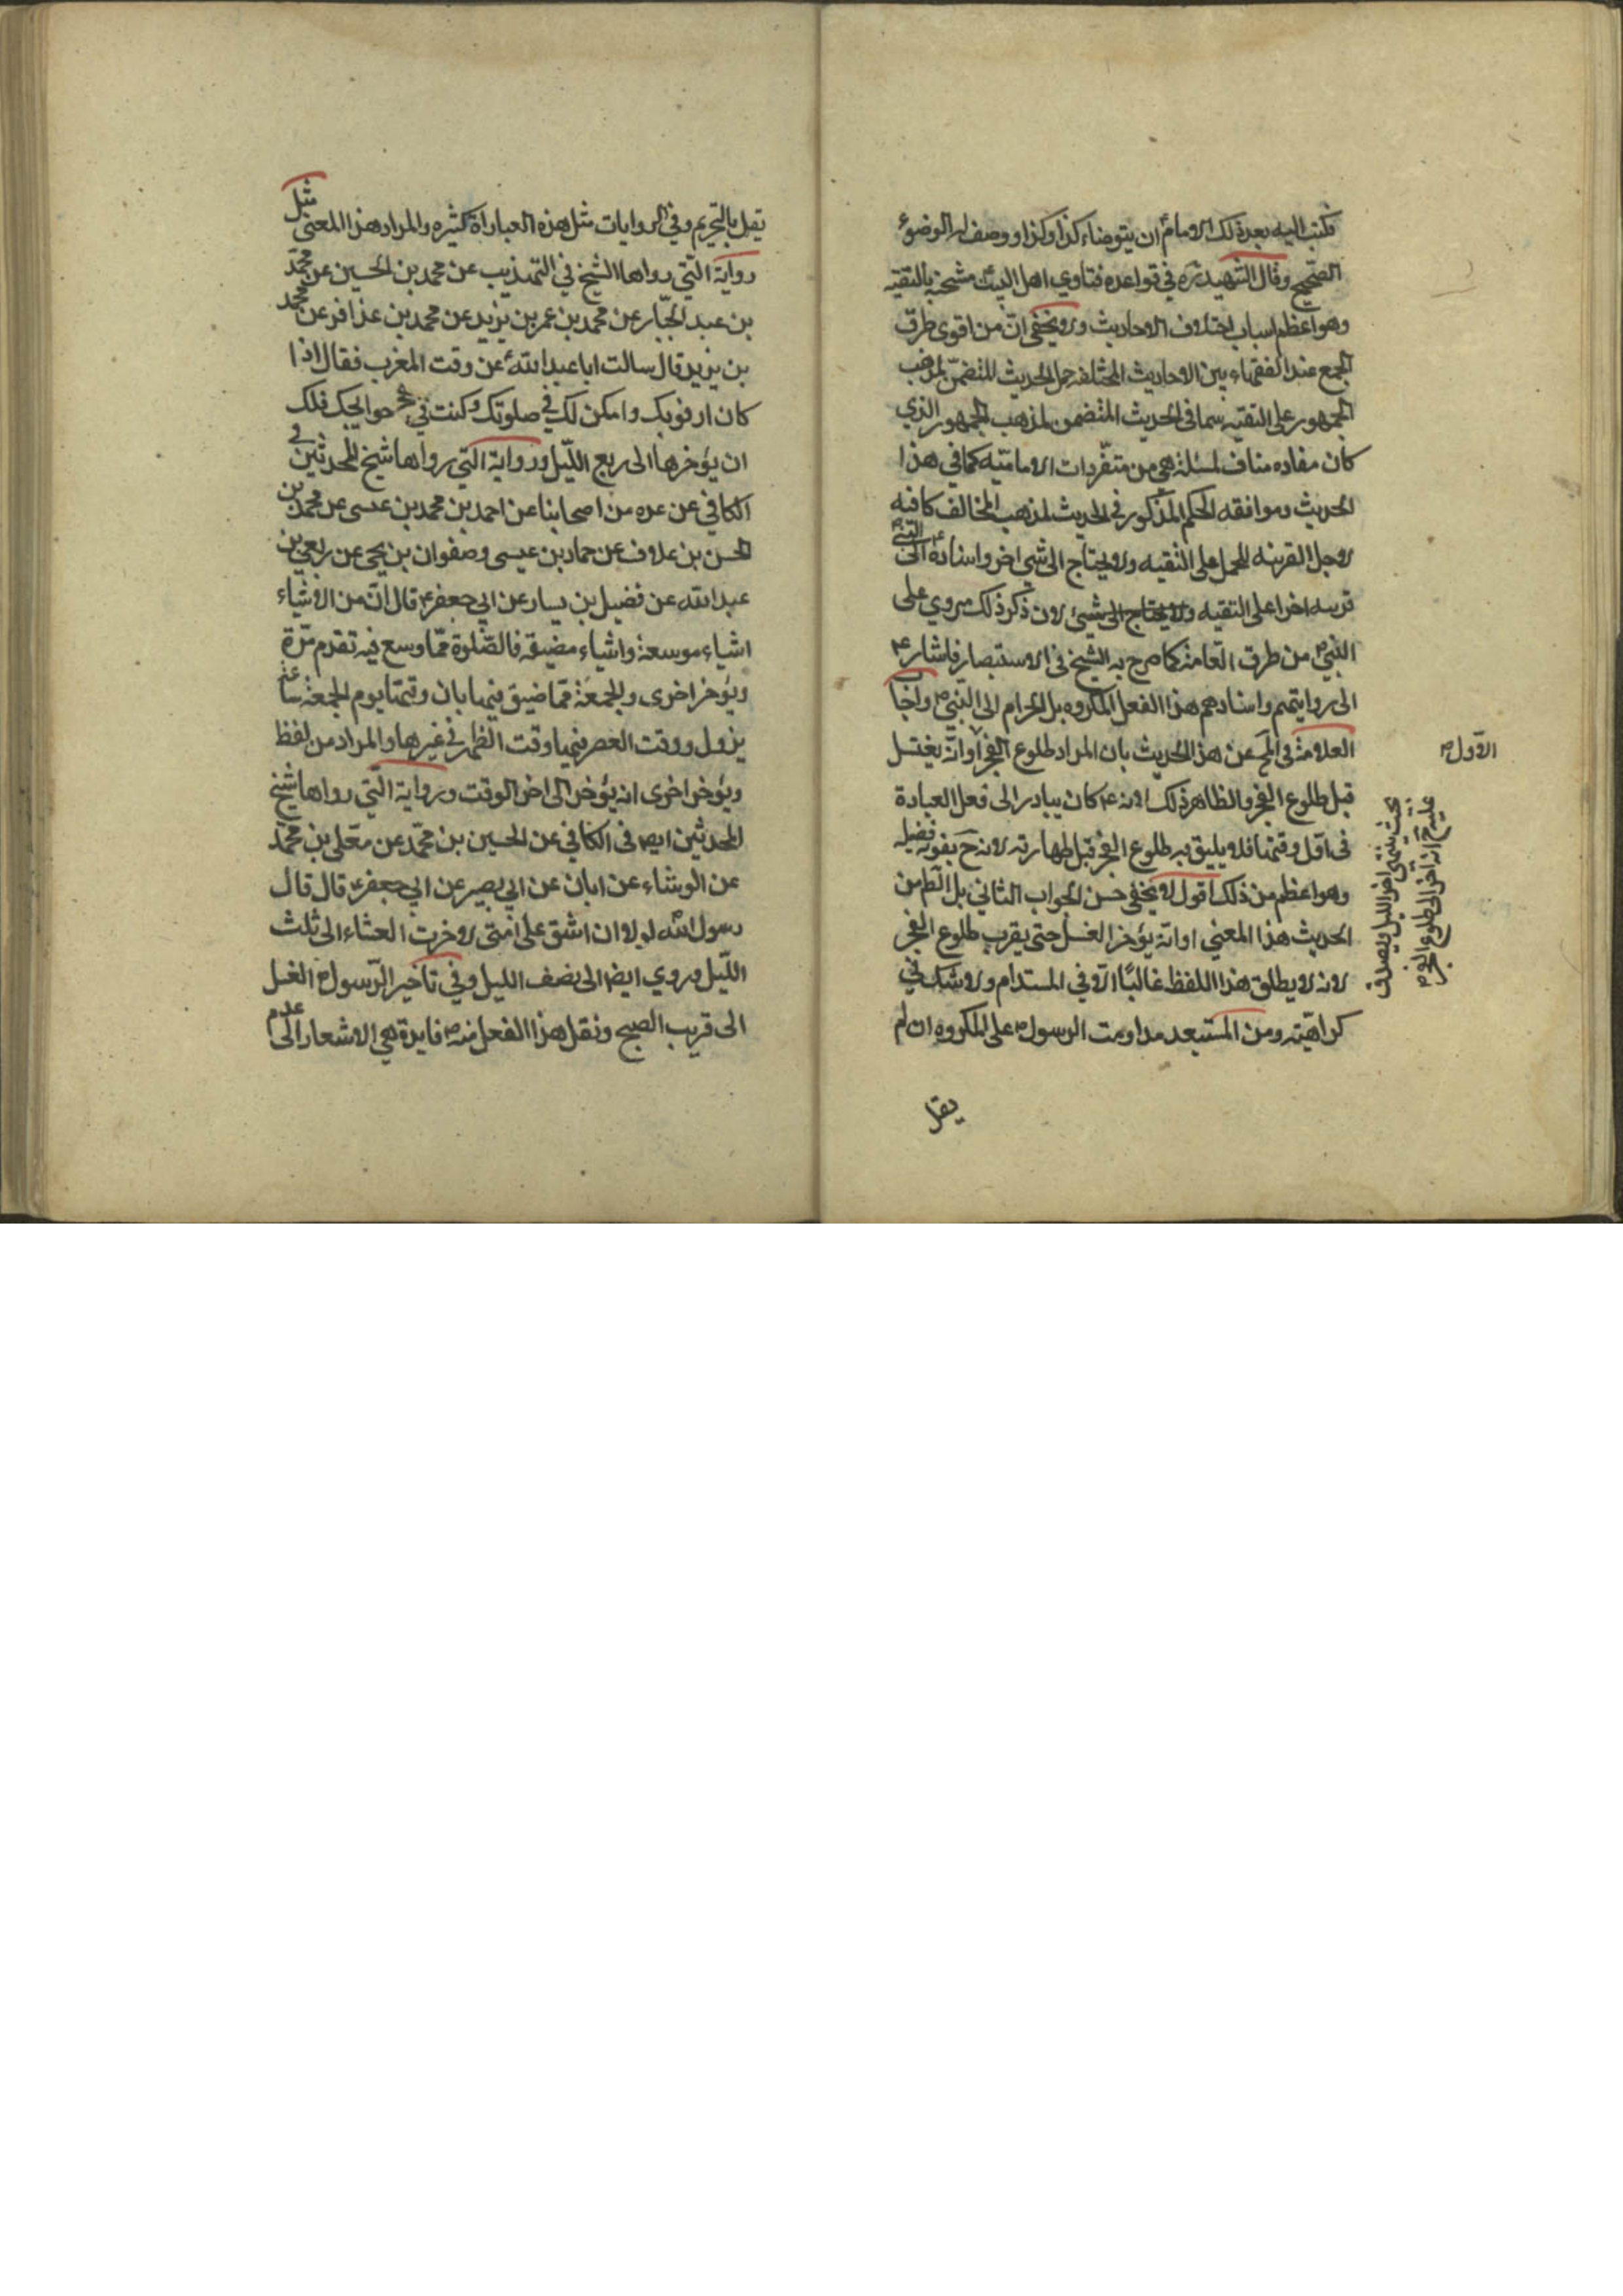 فكتب اليه بعد ذلك الامامؑ ان يتوضاء كذا وكذا ووصف له الوضوء
الصحيح وقال الشهيد ره في قواعده فتاوي اهل البيت مشحنه بالتقيه
وهو اعظم اسباب اختلاف الاحاديث ولا يخفى ان من اقوى طرق
الجمع عند الفقهاء بين الاحاديث المختلفه حمل الحديث المتضمن لمذهب
الجمهور على التقيه سيما في الحديث المتضمن لمذهب الجمهور الذي
كان مفاده مناف لمسئلة هي من متفردات الاماميّه كما في هذا
الحديث وموافقه الحكم المذكور في الحديث لمذهب المخالف كافيه
لاجل القرينه للحمل على التقيه ولا يحتاج الى شي اخر واسنادهؑ الى النبيؐ
قرينه اخرا على التقيه ولا يحتاج الى شيئ لان ذكر ذلك مروي على
النبيؐ من طرق العامة كما صرح به الشيخ في الاستبصار فاشارؑ
الى روايتهم واسنادهم هذا الفعل المكروه بل الحرام الى النبيؐ واجاب
العلامة في عن هذ الحديث بان المراد طلوع الفجر او انه يغتسل
الاولؐ
قبل طلوع الفجر والظاهر ذلك لانهؑ كان يبادر الى فعل العبادة
في اول وقتها فلا يليق به طلوع الفجر قبل طهارته لانه ح يفوته فضيله
وهو اعظم من ذلك اقول لا يخفى حسن الجواب الثاني بل الظ من
الحديث هذا المعني اوانه يؤخر الغسل حتى يقرب طلوع الفجر
بحيث ينتهى اخر الليل ويصدق
عليه انه اخر الى طلوع الفجر
لانه لا يطلق هذا اللفظ غالبًا الا في المستدام ولا شك في
كراهيّته ومن المستبعد مداومت الرسولؐ على المكروه ان لم
يقل
يقل بالتحريم وفي الروايات مثل هذه العباراة كثيره والمراد هذا المعنى مثل
رواية التي رواها الشيخ في التهذيب عن محمد بن الحسين عن محمد
بن عبد الجبار عن محمد بن عمر بن يزيد عن محمد بن عذافر عن محمد
بن يزيد قال سالت ابا عبد اللهؑ عن وقت المغرب فقال اذا
كان ارفق بك وامكن لك في صلوتك وكنت في حوائجك فلك
ان يؤخرها الى ربع الليل ورواية التي رواها شيخ المحدثين في
الكافي عن عده من اصحابنا عن احمد بن محمد بن عيسى عن محمد بن
الحسن بن علاف عن حماد بن عيسى وصفوان بن يحيى عن ربعي بن
عبد الله عن فضيل بن يسار عن ابي جعفرؑ قال ان من الاشياء
اشياء موسعة واشياء مضيقه فالصّلوة ممّا وسع فيه تقدم مرّة
ويؤخر اخرى والجمعة ممّا ضيق فيها بان وقتها يوم الجمعة ساعة
يزول ووقت العصر فيها وقت الظهر في غيرها والمراد من لفظ
ويؤخر اخرى انه يؤخر الى اخر الوقت ورواية التي رواها شيخ
المحدثين ايض في الكافي عن الحسين بن محمّد عن معلى بن محمّد
عن الوشاء عن ابان عن ابي بصير عن ابي جعفرؑ قال قال
رسول الله لولا ان اشق على امتى لاخرت العشاء الى ثلث
الليل وروي ايضا الى نصف الليل وفي تاخير الرّسولؐ الغسل
الى قريب الصبح ونقل هذا الفعل منهؐ فايدة هي الاشعار الى عدم